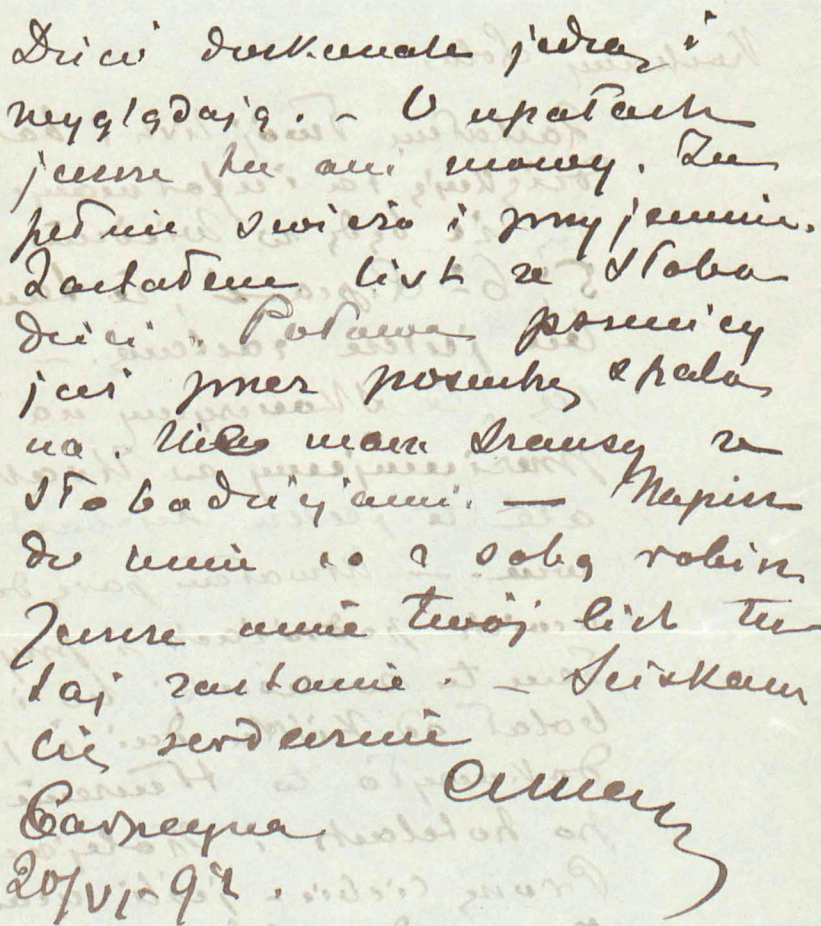 Dzieci doskonale jedzą i
wyglądają. – O upałach
jeszcze tu ani mowy. Zu
pełnie świeżo i przyjemnie.
Dostałem list ze Słobo
dzici. Połowa pszenicy
już przez posuchę spalo
na. masz szansy ze
Słobodzicjami. — Napisz
do mnie co z sobą robisz
Jeszcze mnie twój list tu
taj zastanie. – Ściskam
cię serdecznie
20/VI